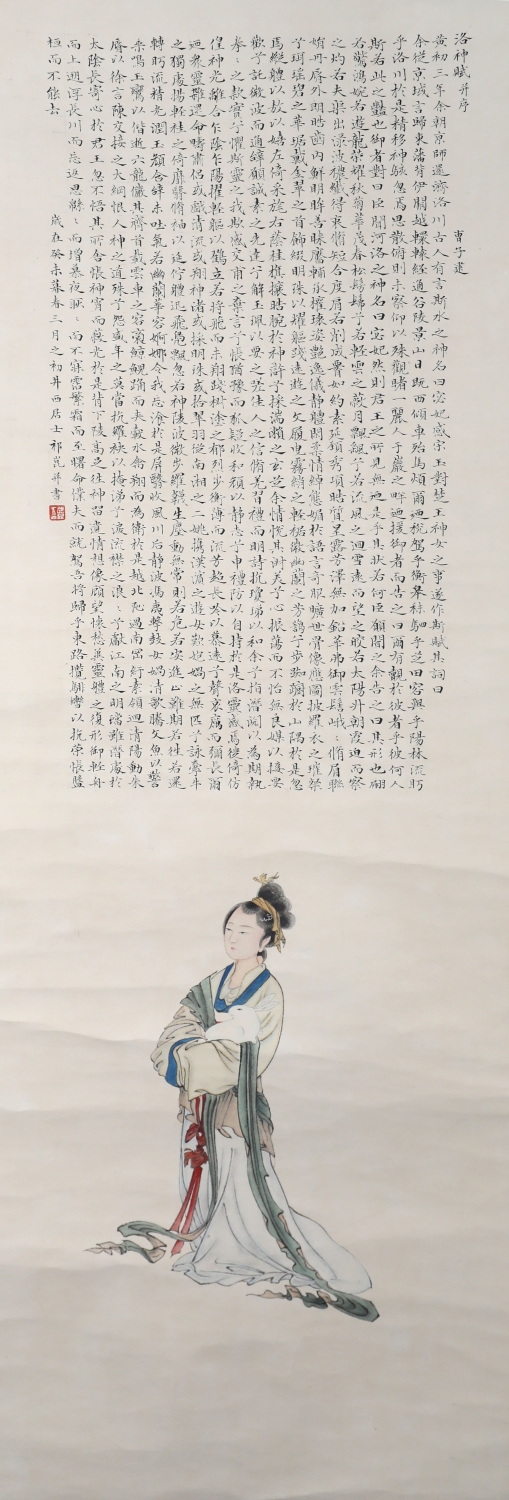 洛神賦并序 曹子建
黃初三年余朝京師還濟洛川古人有言斯水之神名曰宓妃感宋玉對楚王神女之事遂作斯賦其詞曰
余從京域言歸東藩背伊闕越轘轅經通谷陵景山日既西傾車殆馬煩爾迺稅駕乎蘅皋秣駟乎芝田容與乎陽林流眄
乎洛川於是精移神駭忽焉思散俯則未察仰以殊觀睹一麗人于巖之畔迺援御者而告之曰爾有覿於彼者乎彼何人
斯若此之豔也御者對曰臣聞河洛之神名曰宓妃然則君王之所見無迺是乎其狀若何臣願聞之余告之曰其形也翩
若驚鴻婉若遊龍榮耀秋菊華茂春松髣髴兮若輕雲之蔽月飄颻兮若流風之迴雪遠而望之皎若太陽升朝霞迫而察
之灼若芙渠出淥波穠纖得衷脩短合度肩若削成腰如約素延頸秀項皓質呈露芳澤無加鉛華弗御雲髻峨〻脩眉聯
娟丹脣外朗皓齒內鮮明眸善睞靨輔承權瓌姿艷逸儀靜體閑柔情綽態媚於語言奇服曠世骨像應圖披羅衣之璀粲
兮珥瑤碧之華琚戴金翠之首飾綴明珠以耀軀踐遠遊之文履曳霧綃之輕裾微幽蘭之芳藹兮步踟躕於山隅於是忽
焉縱體以敖以嬉左倚采旄右蔭桂旗攘皓腕於神滸兮採湍瀨之玄芝余情悅其淑美兮心振蕩而不怡無良媒以接
歡兮託微波而通辭願誠素之先達兮解玉珮以要之嗟佳人之信脩羌習禮而明詩抗瓊珶以和余兮指潛淵以為期執
拳〻之款實兮懼斯靈之我欺感交甫之棄言兮悵猶豫而狐疑收和顏以靜志兮申禮防以自持於是洛靈感焉徙倚仿
徨神光離合乍陰乍陽擢輕軀以鶴立若將飛而未翔踐椒塗之郁烈步蘅薄而流芳超長吟以慕遠兮聲哀厲而彌長爾
迺眾靈雜遝命疇嘯侶或戲清流或翔神渚或採明珠或拾翠羽從南湘之二妃攜漢濱之遊女歎匏媧之無匹兮詠牽牛
之獨處揚輕袿之倚靡翳脩袖以延佇體迅飛鳧飄忽若神陵波微步羅韈生塵動無常則若危若安進止難期若往若還
轉眄流精光潤玉顏含辭未吐氣若幽蘭華容婀娜令我忘飡於是屏翳收風川后靜波馮夷擊鼓女媧清歌騰文魚以警
乘鳴玉鸞以偕逝六龍儼其齊首載雲車之容裔鯨鯢踊而夾轂水禽翔而為衛於是越北沚過南岡紆素領迴清陽動朱
脣以徐言陳交接之大綱恨人神之道殊兮怨盛年之莫當抗羅袂以掩涕兮淚流襟之浪〻兮獻江南之明璫雖潛處於
太陰長寄心於君王忽不悟其所舍悵神宵而蔽光於是背下陵高足往神留遺情想像顧望懷愁冀靈體之復形御輕舟
而上遡浮長川而忘返思緜〻而增慕夜耿〻而不寐霑繁霜而至曙命僕夫而就駕吾將歸乎東路攬騑轡以抗策悵盤
桓而不能去 歲在癸未暮春三月之初井西居士祁崑并書